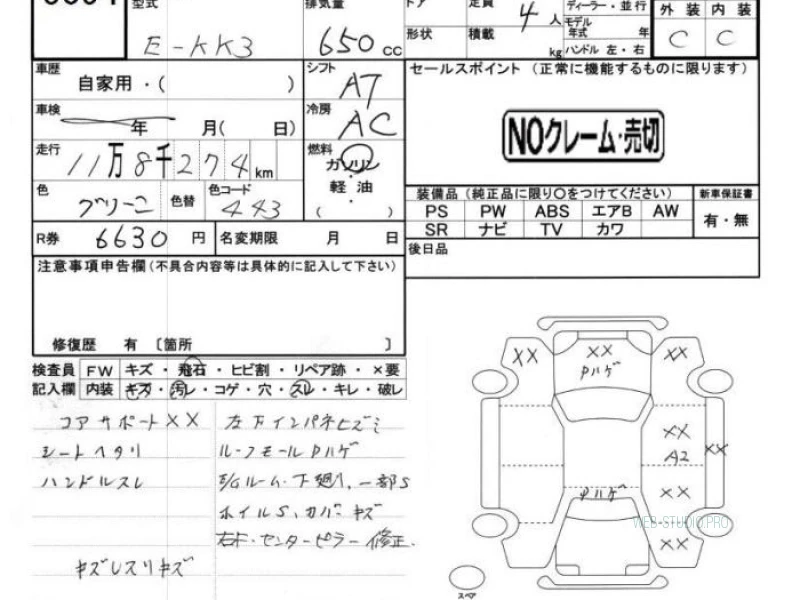 型式 E-KK3
排気量 650 cc
ドア
形状
定員 4 人
積載 kg
ディーラー・並行
モデル年式 年
ハンドル 左・右
外装 内装
C C
車歴 自家用・( )
シフト AT
車検 年 月( 日)
冷房 AC
走行 11万8千274km
燃料 ガソリン
軽油
・
( )
色 グリーン 色替 色コード 443
R券 6630 円 名変期限 月 日
セールスポイント (正常に機能するものに限ります)
NOクレーム・売切
装備品 (純正品に限り○をつけてください) 新車保証書
PS PW ABS エアB AW 有・無
SR ナビ TV カワ
後日品
注意事項申告欄(不具合内容等は具体的に記入して下さい)
修復歴 有 〔箇所 〕
検査員 FW キズ・飛石・ヒビ割・リペア跡・×要
記入欄 内装 キズ・汚レ・コゲ・穴・スレ・キレ・破レ
コアサポートXX
シートヘタリ
ハンドルスレ
キズレスリキズ
左下インパネヒズミ
ルーフモールPハゲ
E/Gルーム・下廻八、一部S
ホイルS、カバーキズ
右ドセンターピラー修正.
XX XX XX
Pハゲ
XX
A2 XX
XX
Pハゲ
XX
スペア
WEB-STUDIO.PRO